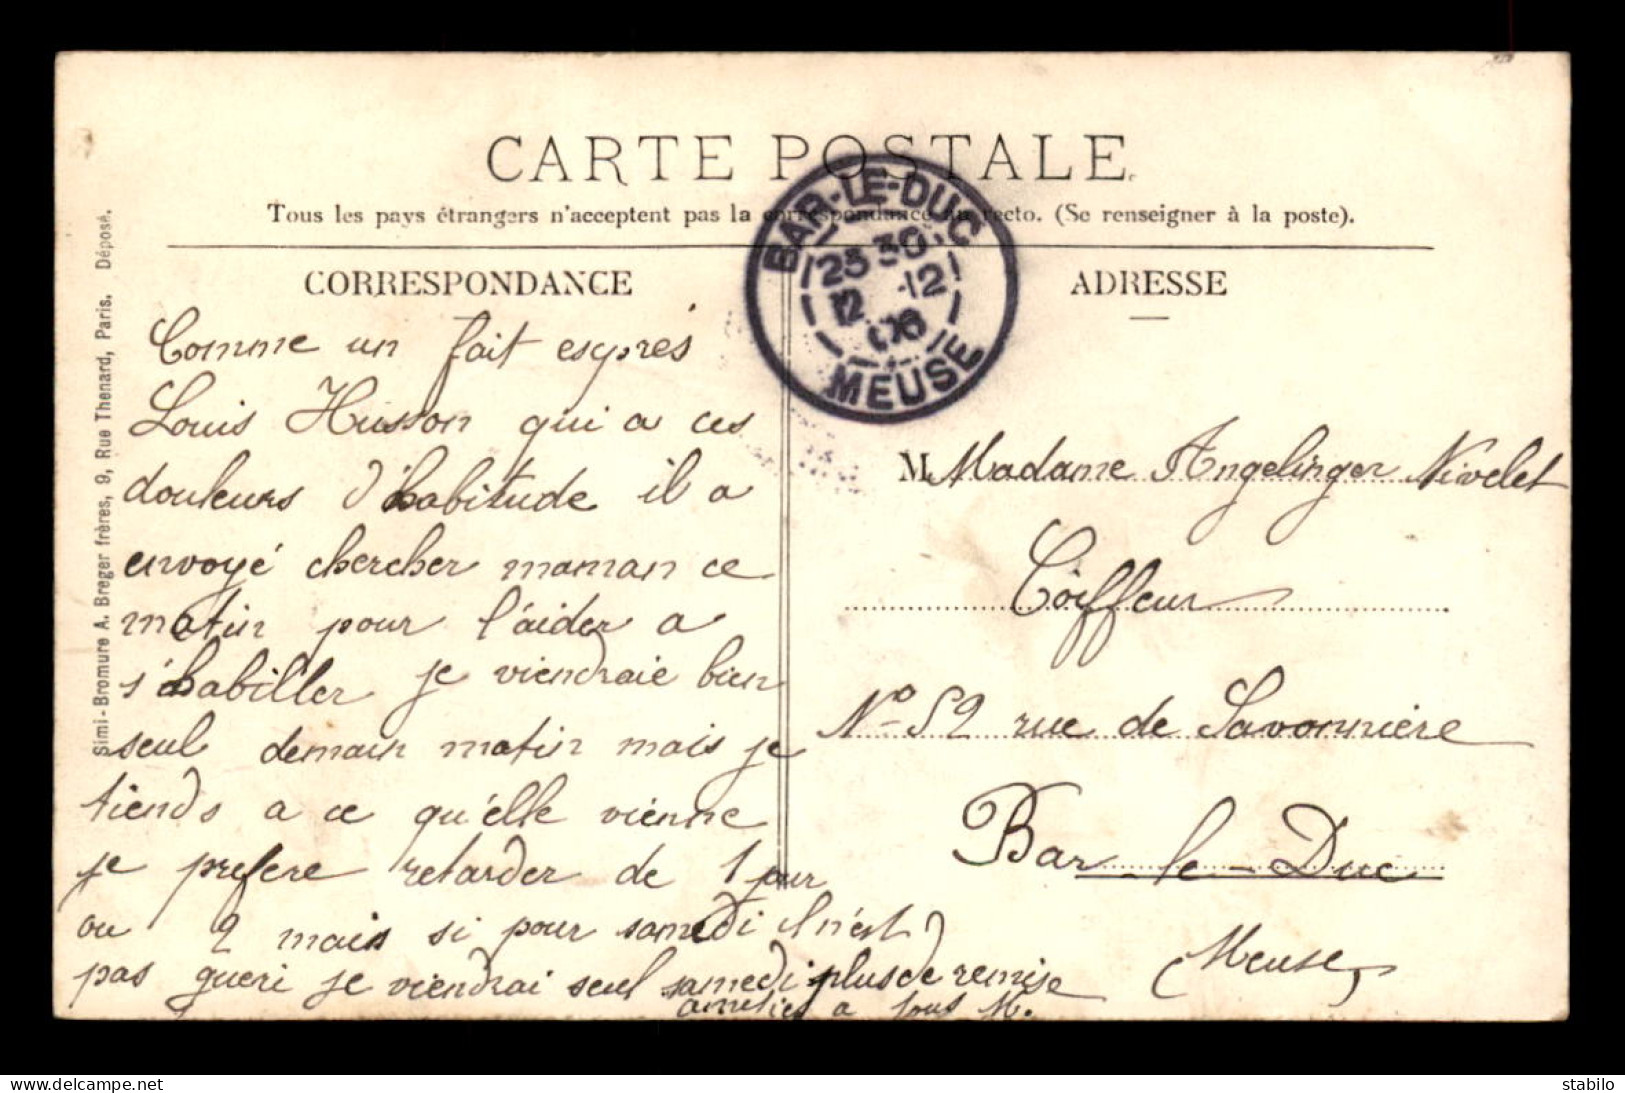 CARTE POSTALE
Tous les pays étrangers n'acceptent pas la correspondance au recto. (Se renseigner à la poste).
CORRESPONDANCE
Comme un fait esyprés
Louis Husson qui a ces
douleurs d'habitude il a
envoyé chercher maman ce
matin pour l'aider a
s'habiller je viendraie bien
seul demain matin mais je
tiends a ce qu'elle vienne
je prefere retarder de 1 jour
ou 2 mais si pour samedi il n'est
pas gueri je viendrai seul samedi plus de remise
amities a tous M.
ADRESSE
M. Madame Angelinger Nivelet
Coiffeur
No 52 rue de Savonnière
Bar-le-Duc
(Meuse)
BAR-LE-DUC
23 30
12 -12
06
MEUSE
Simi-Bromure A. Breger frères, 9, Rue Thenard, Paris. Déposé.
delcampe.net
stabilo